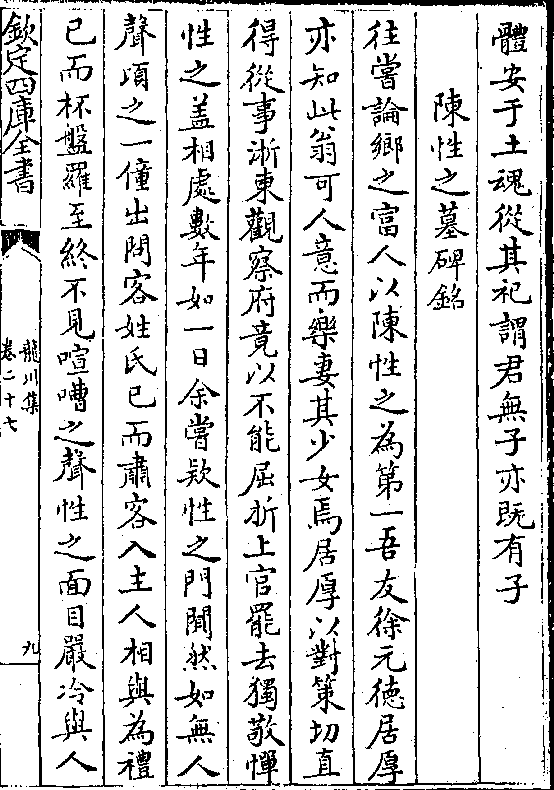 體安于土魂從其祀謂君無子亦既有子
陳性之墓碑銘
往嘗論鄉之富人以陳性之為第一吾友徐元徳居厚
亦知此翁可人意而樂妻其少女焉居厚以對策切直
得從事浙東觀察府竟以不能屈折上官罷去獨敬憚
性之盖相處數年如一日余嘗欵性之門閴然如無人
聲頃之一僮出問客姓氏已而肅客入主人相與為禮
已而杯盤羅至終不見喧嘈之聲性之面目嚴冷與人
欽定四庫全書
龍川集
卷二十七
九